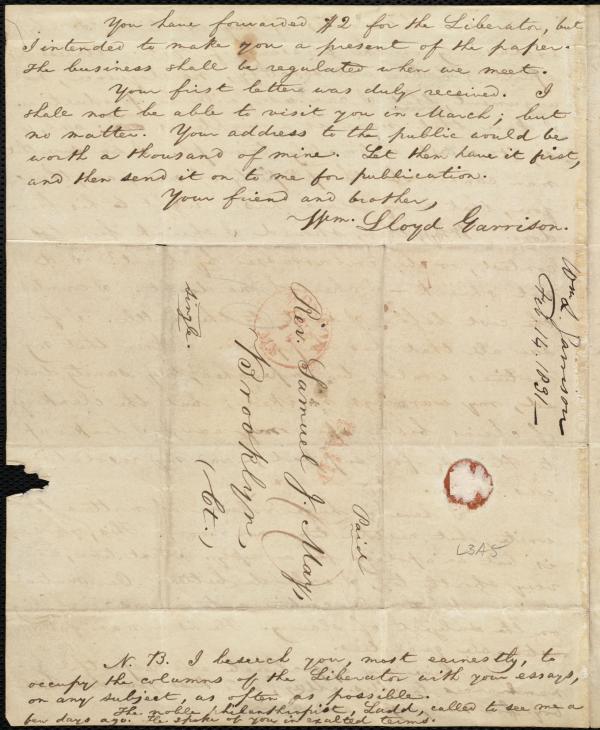 You have forwarded $2 for the Liberator, but
I intended to make you a present of the paper.
The business shall be regulated when we meet.
Your first letter was duly received. I
shall not be able to visit you in March; but
no matter. Your address to the public would be
worth a thousand of mine. Let them have it first,
and then send it on to me for publication.
Your friend and brother,
Wm. Lloyd Garrison.
Wm L. Garrison
Feb. 14. 1831—
single.
Rev. Samuel J. May,
Brooklyn,
Ct.,
Paid
L3A5
N. B. I beseech you, most earnestly, to
occupy the columns of the Liberator with your essays,
on any subject, as often as possible.
The noble philanthropist, Ladd, called to see me a
few days ago. He spoke of you in exalted terms.